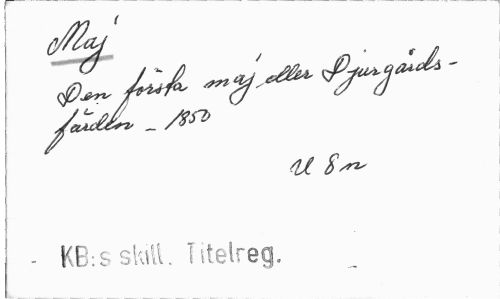 Maj
Den första maj eller Djurgårds-
färden - 1850
U 8 n
KB:s skill. Titelreg.